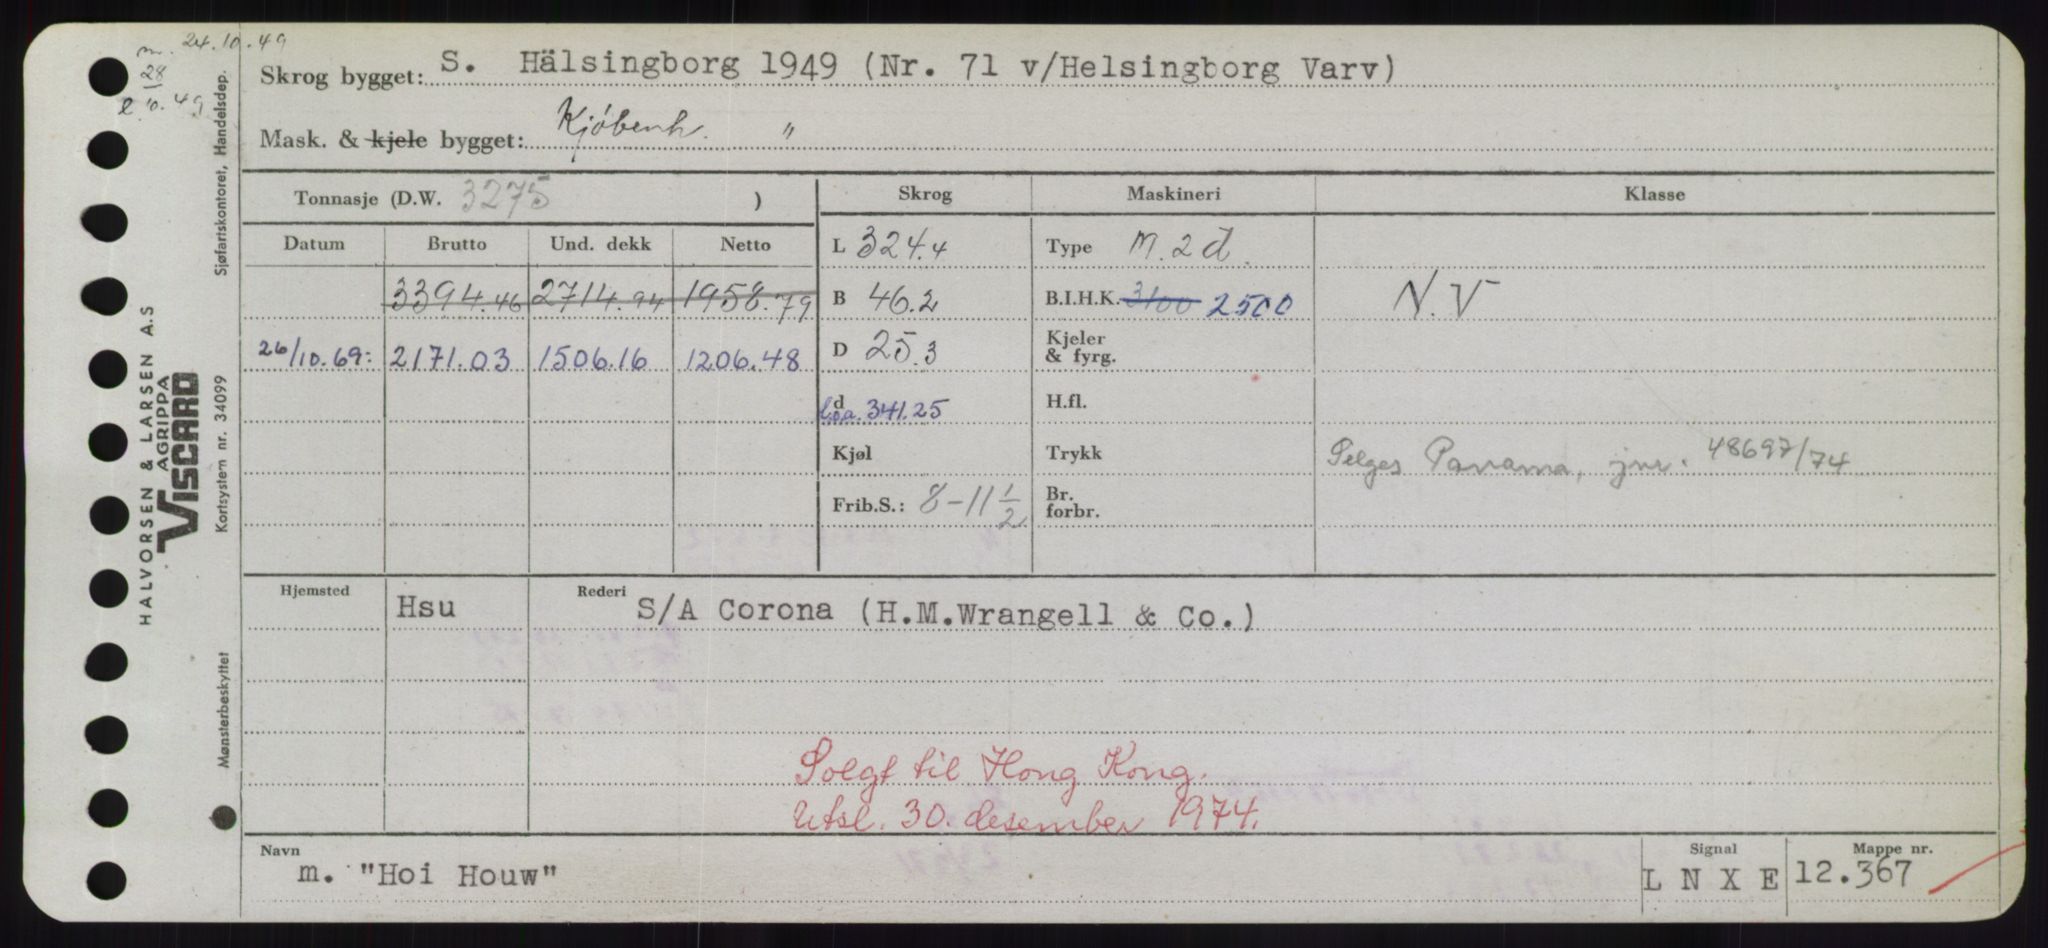 m. 24.10.49
28
10.49
Skrog bygget: S. Hälsingborg 1949 (Nr. 71 v/Helsingborg Varv)
Mask. & kjele bygget: Kjöbenh. "
Tonnasje (D.W. 3275 )
Skrog Maskineri Klasse
Datum Brutto Und. dekk Netto
3394.46 2714.94 1958.79
26/10.69: 2171.03 1506.16 1206.48
L 324.4
B 46.2
D 25.3
d l.o.a. 341.25
Kjøl
Frib.S.: 8-11 1/2
Type M. 2 d.
B.I.H.K. 3100 2500
Kjeler
& fyrg.
H.fl.
Trykk
Br.
forbr.
N.V
Selges Panama, jnr. 48697/74
Hjemsted Hsu Rederi S/A Corona (H.M.Wrangell & Co.)
Solgt til Hong Kong.
Utsl. 30. desember 1974.
Navn m. "Hoi Houw"
Signal L N X E
Mappe nr. 12.367
HALVORSEN & LARSEN A.S
AGRIPPA
VISCARD
Mønsterbeskyttet Kortsystem nr. 34099 Sjøfartskontoret, Handelsdep.